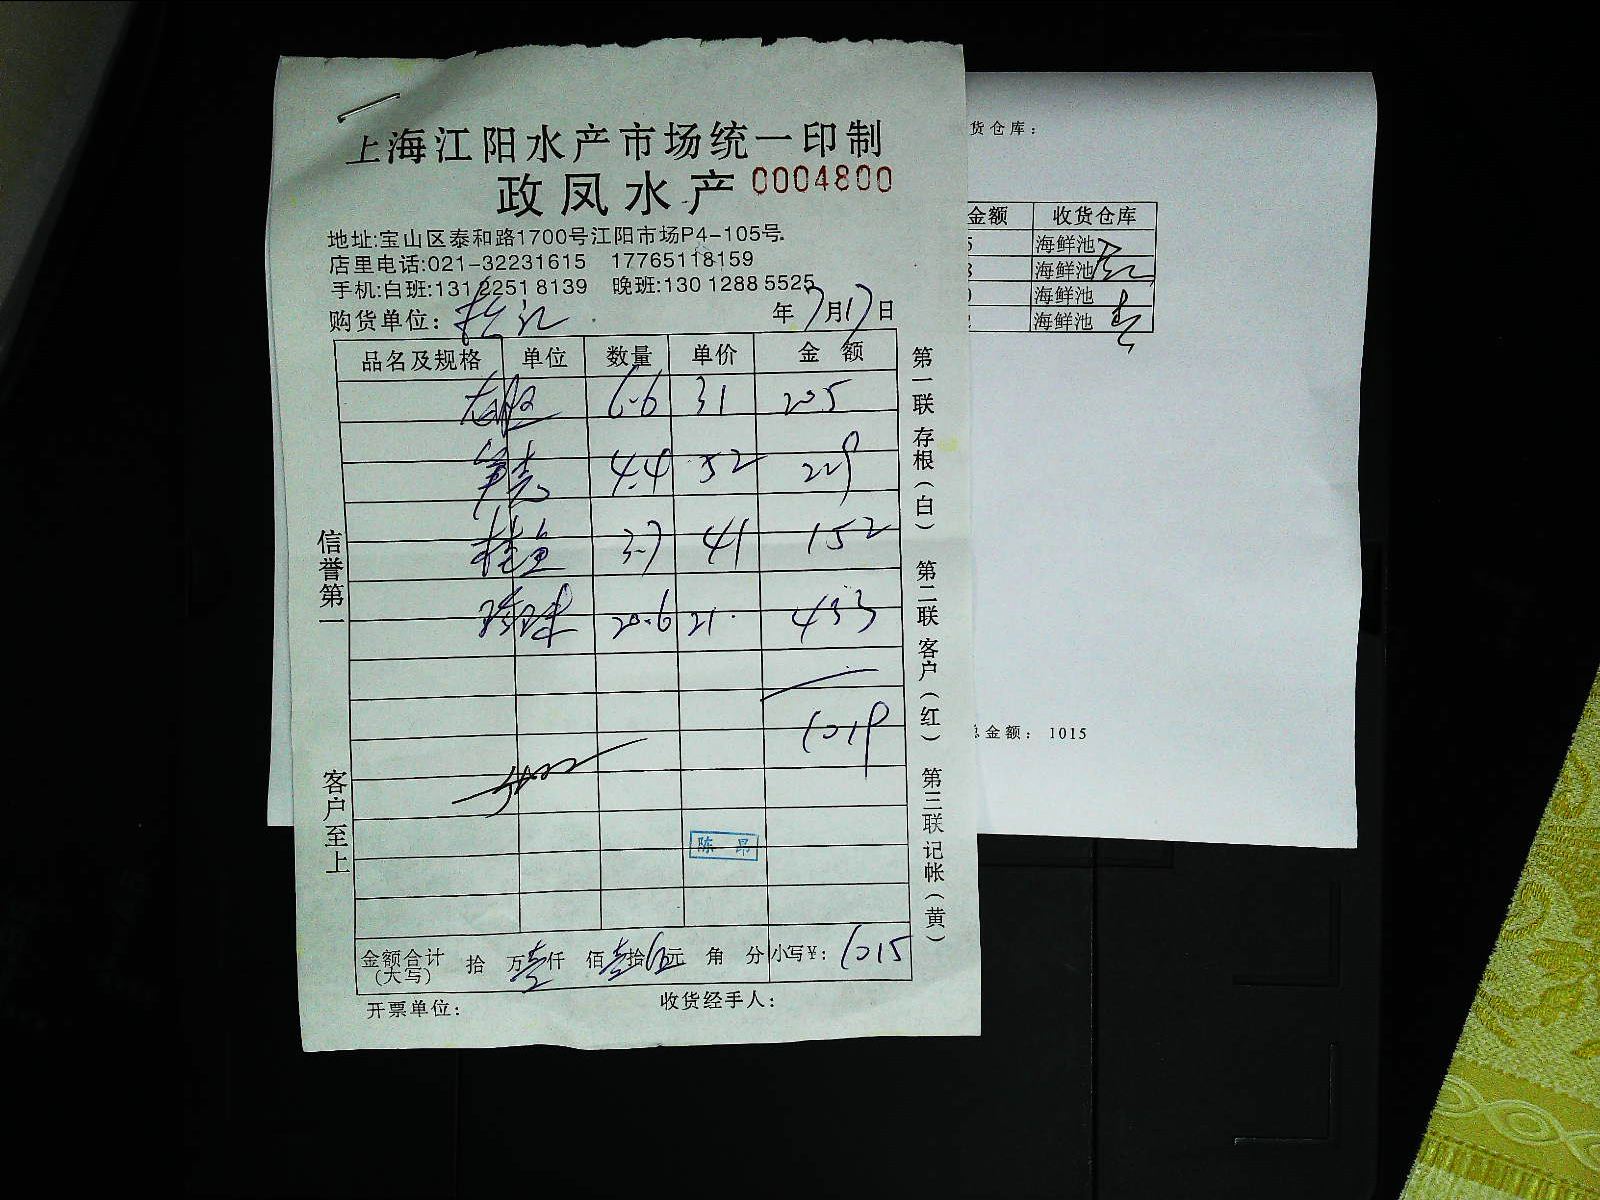 上海江阳水产市场统一印制
政凤水产 0004800
地址:宝山区泰和路1700号江阳市场P4-105号.
店里电话:021-32231615 17765118159
手机:白班:131 2251 8139 晚班:130 1288 5525
购货单位: 松江 年7月17日
品名及规格 单位 数量 单价 金额
6.6 31 205
4.4 52 229
桂鱼 3.7 41 152
20.6 21. 433
1019
陈 昂
金额合计(大写) 拾 万壹仟 佰壹拾伍元 角 分 小写¥: 1015
开票单位: 收货经手人:
信誉第一 客户至上
第一联存根(白) 第二联客户(红) 第三联记帐(黄)
货仓库:
金额 收货仓库
5 海鲜池
8 海鲜池
海鲜池
2 海鲜池
总金额: 1015